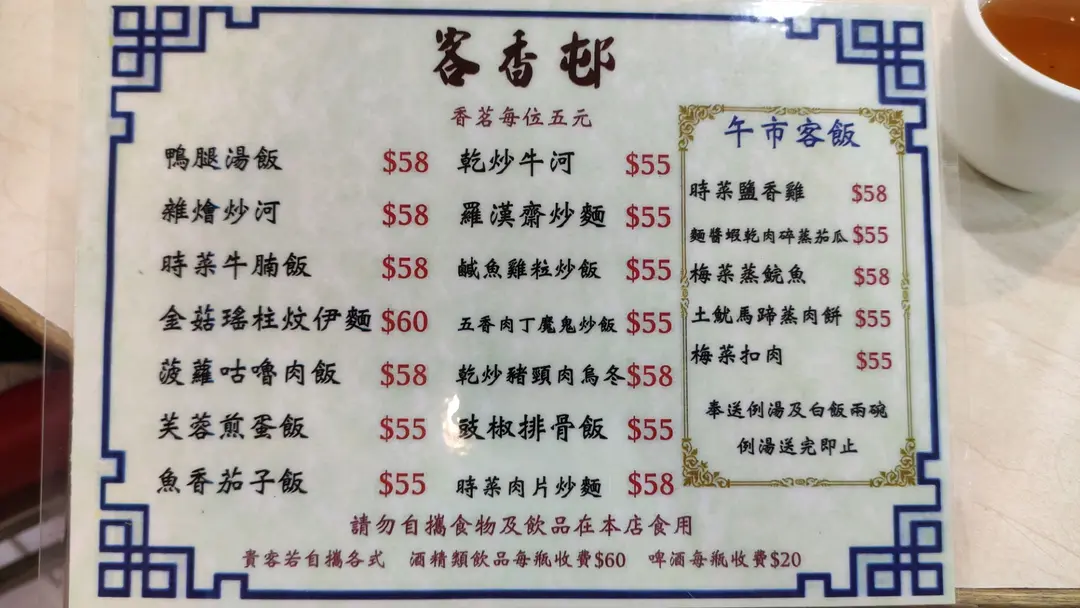 客香邨
香茗每位五元
鴨腿湯飯 $58
雜燴炒河 $58
時菜牛腩飯 $58
金菇瑤柱炆伊麵 $60
菠蘿咕嚕肉飯 $58
芙蓉煎蛋飯 $55
魚香茄子飯 $55
乾炒牛河 $55
羅漢齋炒麵 $55
鹹魚雞粒炒飯 $55
五香肉丁魔鬼炒飯 $55
乾炒豬頸肉烏冬 $58
豉椒排骨飯 $55
時菜肉片炒麵 $58
午市客飯
時菜鹽香雞 $58
麵醬蝦乾肉碎蒸茄瓜 $55
梅菜蒸鯇魚 $58
土魷馬蹄蒸肉餅 $55
梅菜扣肉 $55
奉送例湯及白飯兩碗
例湯送完即止
請勿自攜食物及飲品在本店食用
貴客若自攜各式 酒精類飲品每瓶收費$60 啤酒每瓶收費$20